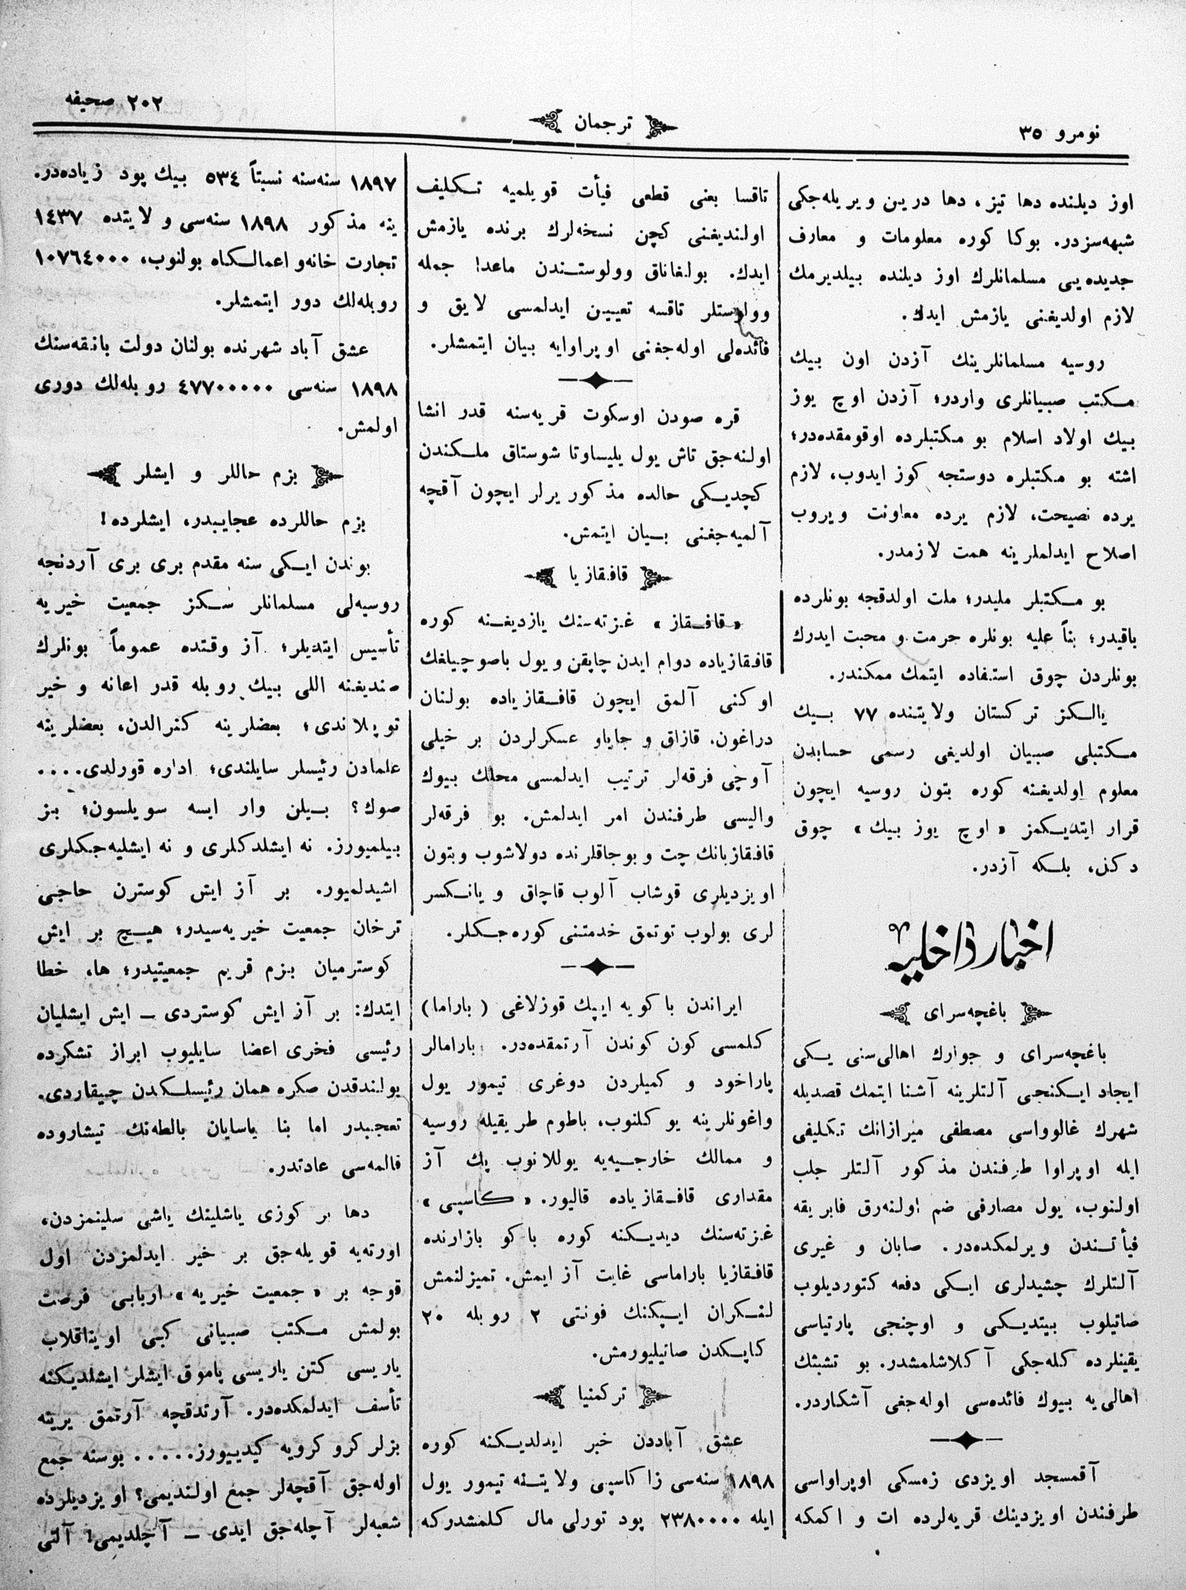 نومرو ٣٥
ترجمان
٢٠٢ صحیفه
اوز دیلنده دها تیز، دها درین ویریله‌جكی
شبهه‌سزدر. بوكا كوره معلومات و معارف
جدیده‌یی مسلمانلرك اوز دیلنده بیلدیرمك
لازم اولدیغنی یازمش ایدك.
روسیه مسلمانلرینك آزدن اون بیك
مكتب صبیانلری واردر؛ آزدن اوچ یوز
بیك اولاد اسلام بو مكتبلرده اوقومقده‌در؛
اشته بو مكتبلره دوستجه كوز ایدوب، لازم
یرده نصیحت، لازم یرده معاونت ویروب
اصلاح ایدلملرینه همت لازمدر.
بو مكتبلر ملیدر؛ ملت اولدقجه بونلرده
باقیدر؛ بناً علیه بونلره حرمت و محبت ایدرك
بونلردن چوق استفاده ایتمك ممكندر.
یالكز تركستان ولایتنده ٧٧ بیك
مكتبلی صبیان اولدیغی رسمی حسابدن
معلوم اولدیغنه كوره بتون روسیه ایچون
قرار ایتدیكمز « اوچ یوز بیك » چوق
دكل، بلكه آزدر.
اخبار داخلیه
باغچه‌سرای
باغچه‌سرای و جوارك اهالی‌سنی یكی
ایجاد ایكنجی آلتلرینه آشنا ایتمك قصدیله
شهرك غالوواسی مصطفی میرزانك تكلیفی
ایله اوپراوا طرفندن مذكور آلتلر جلب
اولنوب، یول مصارفی ضم اولنه‌رق فابریقه
فیأتندن ویرلمكده‌در. صابان و غیری
آلتلرك چشیدلری ایكی دفعه كتوردیلوب
صاتیلوب بیتدیكی و اوچنجی پارتیاسی
یقینلرده كله‌جكی آكلاشلمشدر. بو تشبثك
اهالی‌یه بیوك فائده‌سی اوله‌جغی آشكاردر.
آقمسجد اویزدی زمسكی اوپراواسی
طرفندن اویزدینك قریه‌لرده ات و اكمكه
تاقسا یعنی قطعی فیأت قویلمیه تكلیف
اولندیغنی كچن نسخه‌لرك برنده یازمش
ایدك. بولغاناق وولوستندن ماعدا جمله
وولوستلر تاقسه تعیین ایدلمسی لایق و
فائده‌لی اوله‌جغنی اوپراوایه بیان ایتمشلر.
قره صودن اوسكوت قریه‌سنه قدر انشا
اولنه‌جق تاش یول یلیساوتا شوستاق ملكندن
كچدیكی حالده مذكور یرلر ایچون آقچه
آلمیه‌جغنی بیان ایتمش.
قافقازیا
« قافقاز » غزته‌سنك یازدیغنه كوره
قافقازیاده دوام ایدن چاپقن و یول باصوچیلغك
اوكنی آلمق ایچون قافقازیاده بولنان
دراغون، قازاق و جایاو عسكرلردن بر خیلی
آوچی فرقه‌لر ترتیب ایدلمسی محلك بیوك
والیسی طرفندن امر ایدلمش. بو فرقه‌لر
قافقازیانك چت و بوجاقلرنده دولاشوب وبتون
اویزدیلری قوشاب آلوب قاچاق و یانكسر
لری بولوب توتمق خدمتنی كوره‌جكلر.
ایراندن باكویه ایپك قوزلاغی ( باراما)
كلمسی كون كوندن آرتمقده‌در. بارامالر
پاراخود و كمیلردن دوغری تیمور یول
واغونلرینه یوكلنوب، باطوم طریقیله روسیه
و ممالك خارجیه‌یه یوللانوب پك آز
مقداری قافقازیاده قالیور. « كاسپی »
غزته‌سنك دیدیكنه كوره باكو بازارنده
قافقازیا باراماسی غایت آز ایمش. تمیزلنمش
لنكران ایپكنك فونتی ٢ روبله ٢٠
كاپكدن صاتیلیورمش.
تركمنیا
عشق آباددن خبر ایدلدیكنه كوره
١٨٩٨ سنه‌سی زاكاسپی ولایتنه تیمور یول
ایله ٢٣٨٠٠٠٠ پود تورلی مال كلمشدركه
١٨٩٧ سنه‌سنه نسبتاً ٥٣٤ بیك پود زیاده‌در.
ینه مذكور ١٨٩٨ سنه‌سی ولایتده ١٤٣٧
تجارت خانه‌و اعمالكاه بولنوب، ١٠٧٦٤٠٠٠
روبله‌لك دور ایتمشلر.
عشق آباد شهرنده بولنان دولت بانقه‌سنك
١٨٩٨ سنه‌سی ٤٧٧٠٠٠٠٠ روبله‌لك دوری
اولمش.
بزم حاللر و ایشلر
بزم حاللرده عجایبدر، ایشلرده!
بوندن ایكی سنه مقدم بری بری آردنجه
روسیه‌لی مسلمانلر سكز جمعیت خیریه
تأسیس ایتدیلر؛ آز وقتده عموماً بونلرك
صندیغنه اللی بیك روبله قدر اعانه و خیر
توپلاندی؛ بعضلرینه كنرالدن، بعضلرینه
علمادن رئیسلر سایلندی؛ اداره قورلدی....
صوك؟ بیلن وار ایسه سویلسون؛ بز
بیلمیورز. نه ایشلدكلری و نه ایشلیه‌جكلری
اشیدلمیور. بر آز ایش كوسترن حاجی
ترخان جمعیت خیریه‌سیدر؛ هیچ بر ایش
كوسترمیان بزم قریم جمعیتیدر؛ ها، خطا
ایتدك: بر آز ایش كوستردی ـ ایش ایشلیان
رئیسی فخری اعضا سایلیوب ابراز تشكرده
بولندقدن صكره همان رئیسلكدن چیقاردی.
تعجبدر اما بنا یاسایان بالطه‌نك تیشاروده
قالمه‌سی عادتدر.
دها بر كوزی یاشلینك یاشی سلینمزدن،
اورته‌یه قویله‌جق بر خیر ایدلمزدن اول
قوجه بر « جمعیت خیریه » اربابی فرصت
بولمش مكتب صبیانی كبی اویناقلاب
یاریسی كتن یاریسی پاموق ایشلر ایشلدیكنه
تأسف ایدلمكده‌در. آرتدقچه آرتمق یرینه
بزلر كرو كرویه كیدییورز..... بوسنه جمع
اوله‌جق آقچه‌لر جمع اولندیمی؟ اویزدیلرده
شعبه‌لر آچله‌جق ایدی ـ آچلدیمی؟ آلتی